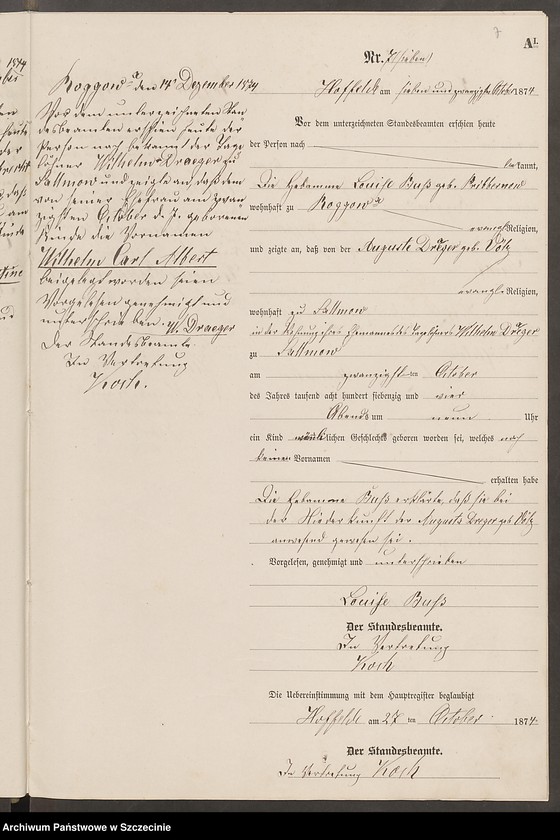 7
A1.
Nr. 7 (sieben)
Hoffelde am sieben und zwanzigsten Octbr. 1874
Vor dem unterzeichneten Standesbeamten erschien heute
der Person nach
bekannt,
Die Hebamme Louise Buß geb.
wohnhaft zu Roggow A
evangl. Religion,
und zeigte an, daß von der Auguste Dräger geb. Völz
evangl. Religion,
wohnhaft zu Sallmow
in der Wohnung ihres Ehemannes des Tagelöhners Wilhelm Dräger
zu Sallmow
am zwanzigsten October
des Jahres tausend acht hundert siebenzig und vier
Abends um neun Uhr
ein Kind männlichen Geschlechts geboren worden sei, welches noch
keinen Vornamen
erhalten habe
Die Hebamme Buß erklärte, daß sie bei
der Niederkunft der Auguste Dräger geb. Völz
anwesend gewesen sei.
Vorgelesen, genehmigt und unterschrieben
Louise Buß
Der Standesbeamte.
In Vertretung
Koch
Die Uebereinstimmung mit dem Hauptregister beglaubigt
Hoffelde am 27 ten October 1874
Der Standesbeamte.
In Vertretung Koch
Roggow A den 14t Dezember 1874
Vor dem unterzeichneten Stan
desbeamten erschien heute der
Person nach bekannt der Tage
löhner Wilhelm Draeger zu
Sallmow und zeigte an, daß dem
von seiner Ehefrau am zwan
zigsten October d. J. geborenen
Kinde die Vornamen
Wilhelm Carl Albert
beigelegt worden seien
Vorgelesen genehmigt und
unterschrieben. W. Draeger
Der Standesbeamte
In Vertretung
Koch.
Archiwum Państwowe w Szczecinie